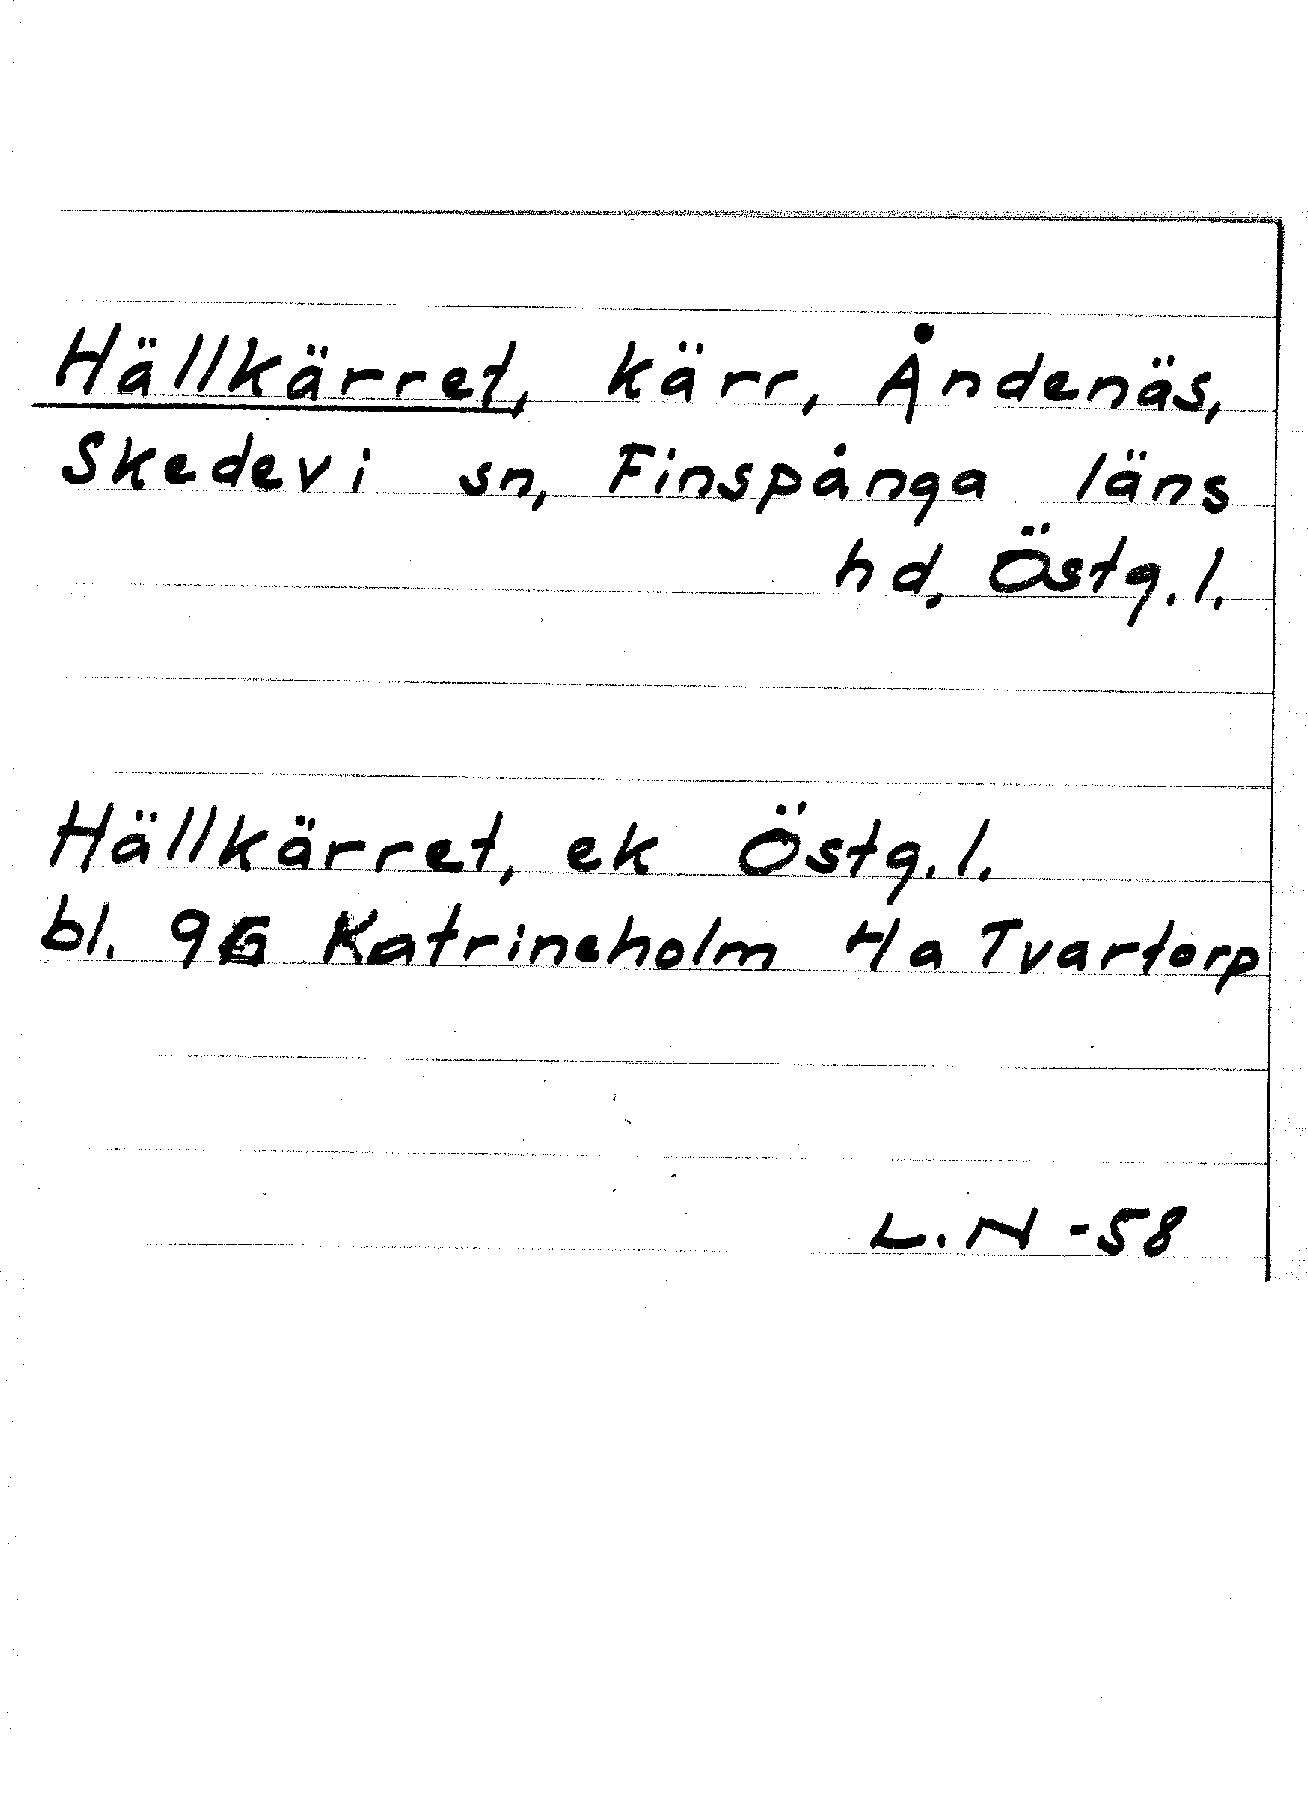 Hällkärret, kärr, Åndenäs,
Skedevi sn, Finspånga läns
hd, Östg.l.
Hällkärret, ek Östg.l.
bl. 9G Katrineholm Ha Tvartorp
L.N -58